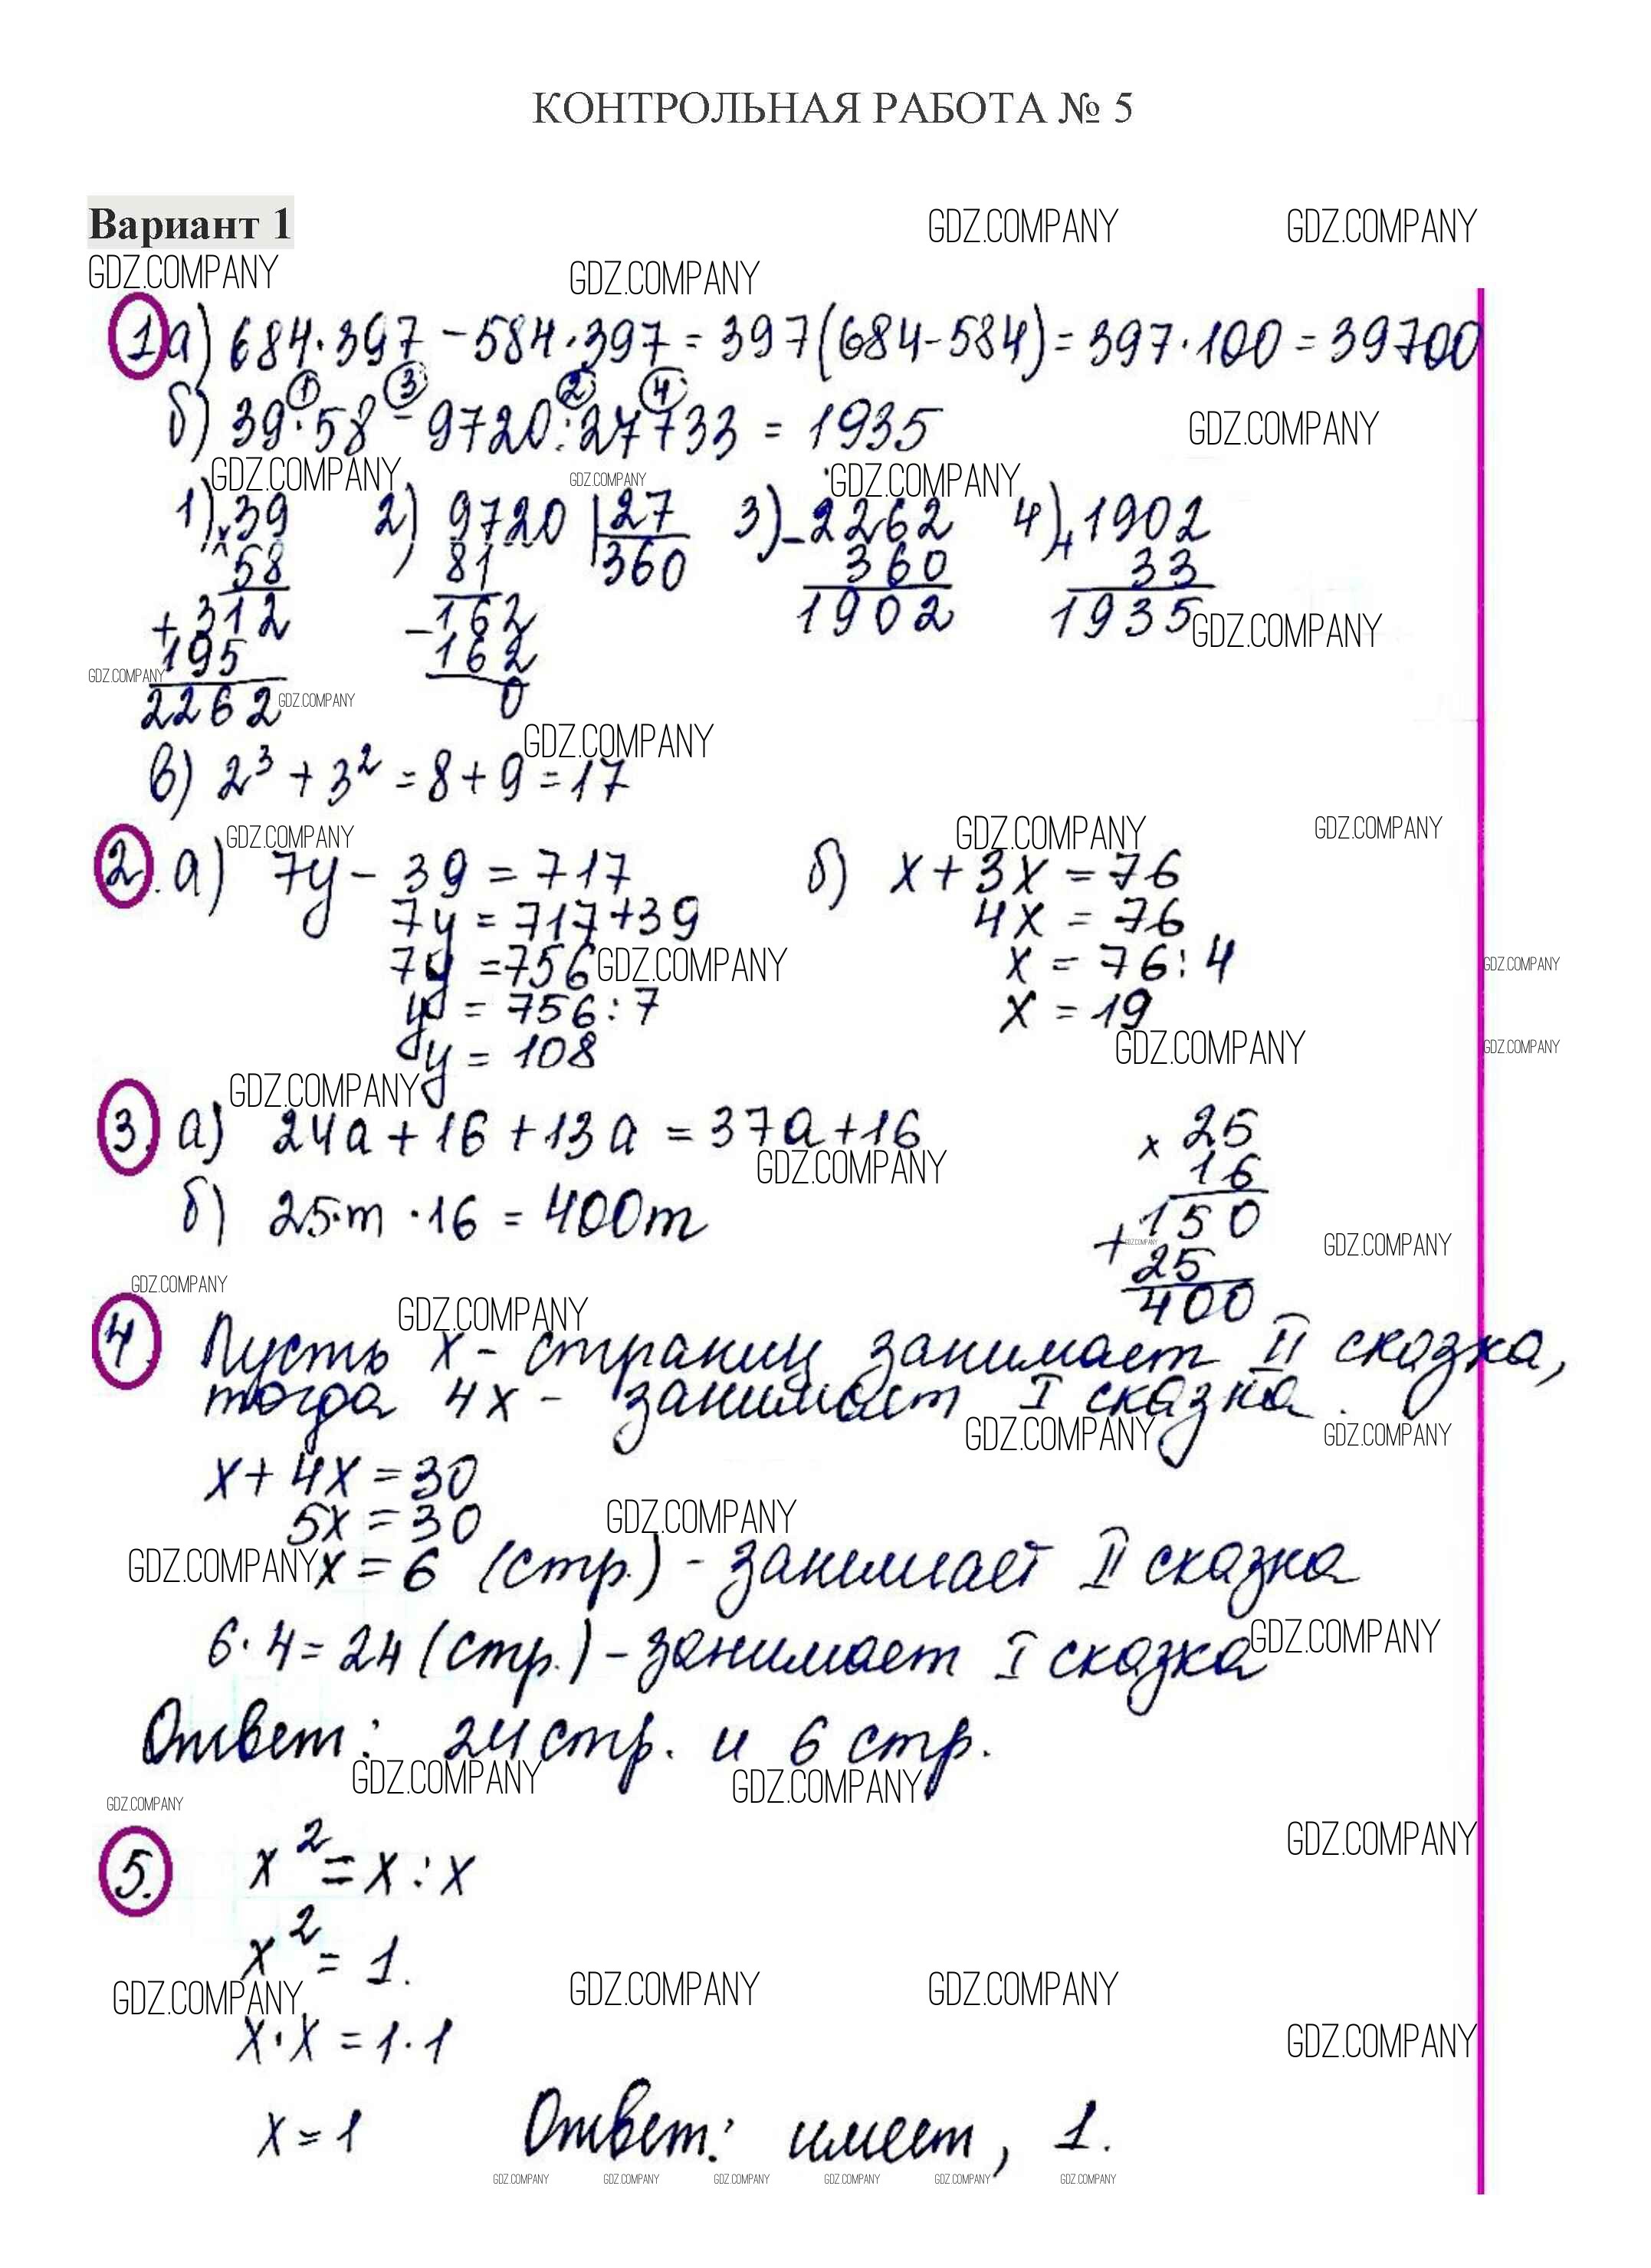 КОНТРОЛЬНАЯ РАБОТА № 5
Вариант 1
GDZ.COMPANY GDZ.COMPANY
GDZ.COMPANY GDZ.COMPANY
1 а) 684·397 - 584·397 = 397(684-584) = 397·100 = 39700
1 3 2 4
б) 39·58 - 9720:27+33 = 1935
GDZ.COMPANY
GDZ.COMPANY GDZ.COMPANY GDZ.COMPANY
1) ×39 2) 9720 | 27 3) -2262 4) +1902
58 81 360 360 33
+312 -162 1902 1935 GDZ.COMPANY
195 162
GDZ.COMPANY
2262 GDZ.COMPANY 0
GDZ.COMPANY
в) 2³ + 3² = 8 + 9 = 17
GDZ.COMPANY GDZ.COMPANY GDZ.COMPANY
2. а) 7y - 39 = 717 б) x + 3x = 76
7y = 717+39 4x = 76
7y = 756 GDZ.COMPANY x = 76:4 GDZ.COMPANY
y = 756:7 x = 19
y = 108 GDZ.COMPANY GDZ.COMPANY
GDZ.COMPANY
3. а) 24a + 16 + 13a = 37a + 16 × 25
GDZ.COMPANY 16
б) 25·m ·16 = 400m 150
+ GDZ.COMPANY GDZ.COMPANY
25
GDZ.COMPANY GDZ.COMPANY 400
4. Пусть x - страниц занимает II сказка,
тогда 4x - занимает I сказка.
GDZ.COMPANY GDZ.COMPANY
x + 4x = 30
5x = 30 GDZ.COMPANY
GDZ.COMPANY x = 6 (стр.) - занимает II сказка
6·4 = 24 (стр.) - занимает I сказка GDZ.COMPANY
Ответ: 24 стр. и 6 стр.
GDZ.COMPANY GDZ.COMPANY
GDZ.COMPANY
GDZ.COMPANY
5. x² = x : x
x² = 1.
GDZ.COMPANY GDZ.COMPANY GDZ.COMPANY
x·x = 1·1 GDZ.COMPANY
x = 1 Ответ: имеет, 1.
GDZ.COMPANY GDZ.COMPANY GDZ.COMPANY GDZ.COMPANY GDZ.COMPANY GDZ.COMPANY